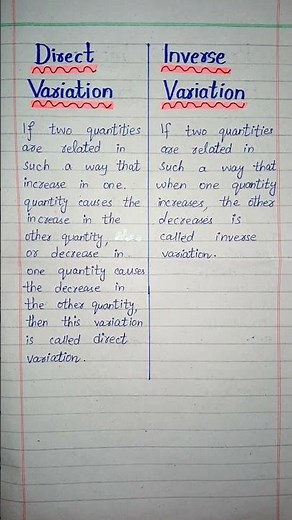 Direct
Variation
If two quantities
are related in
such a way that
increase in one.
quantity causes the
increase in the
other quantity,
or decrease in
one quantity causes
the decrease in
the other quantity,
then this variation
is called direct
variation.
Inverse
Variation
If two quantities
are related in
such a way that
when one quantity
increases, the other
decreases is
called inverse
variation.